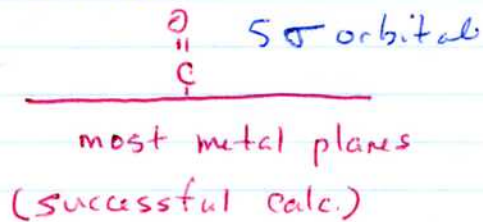 O 5σ orbital
C
most metal planes
(successful calc.)